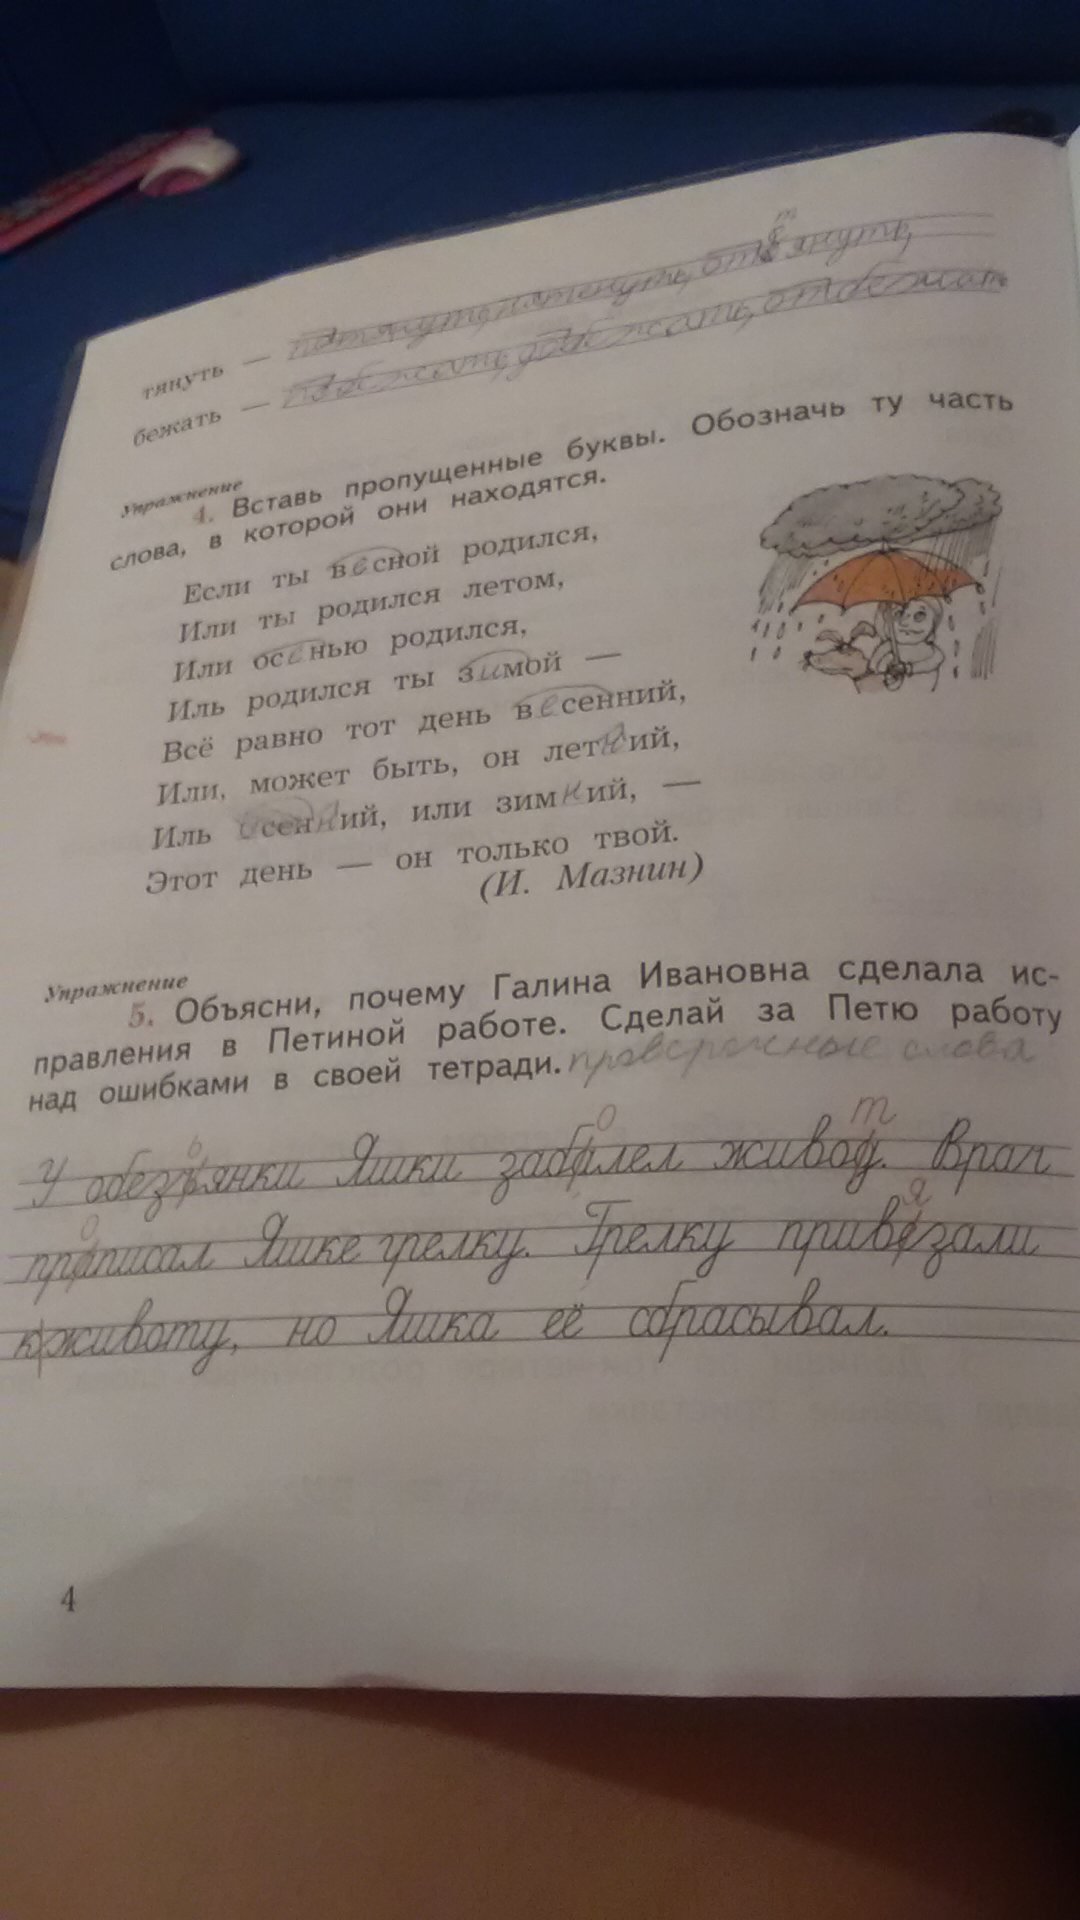 тянуть — потянуть, натенуть, оттянуть,
бежать —
Упражнение
4. Вставь пропущенные буквы. Обозначь ту часть
слова, в которой они находятся.
Если ты весной родился,
Или ты родился летом,
Или осенью родился,
Иль родился ты зимой —
Всё равно тот день весенний,
Или, может быть, он летний,
Иль осенний, или зимний, —
Этот день — он только твой.
(И. Мазнин)
Упражнение
5. Объясни, почему Галина Ивановна сделала ис-
правления в Петиной работе. Сделай за Петю работу
над ошибками в своей тетради. проверочные слова
ь о т
У обезъянки Яшки забалел живод. Врач
о я
праписал Яшке грелку. Грелку привезали
к|животу, но Яшка её сбрасывал.
4